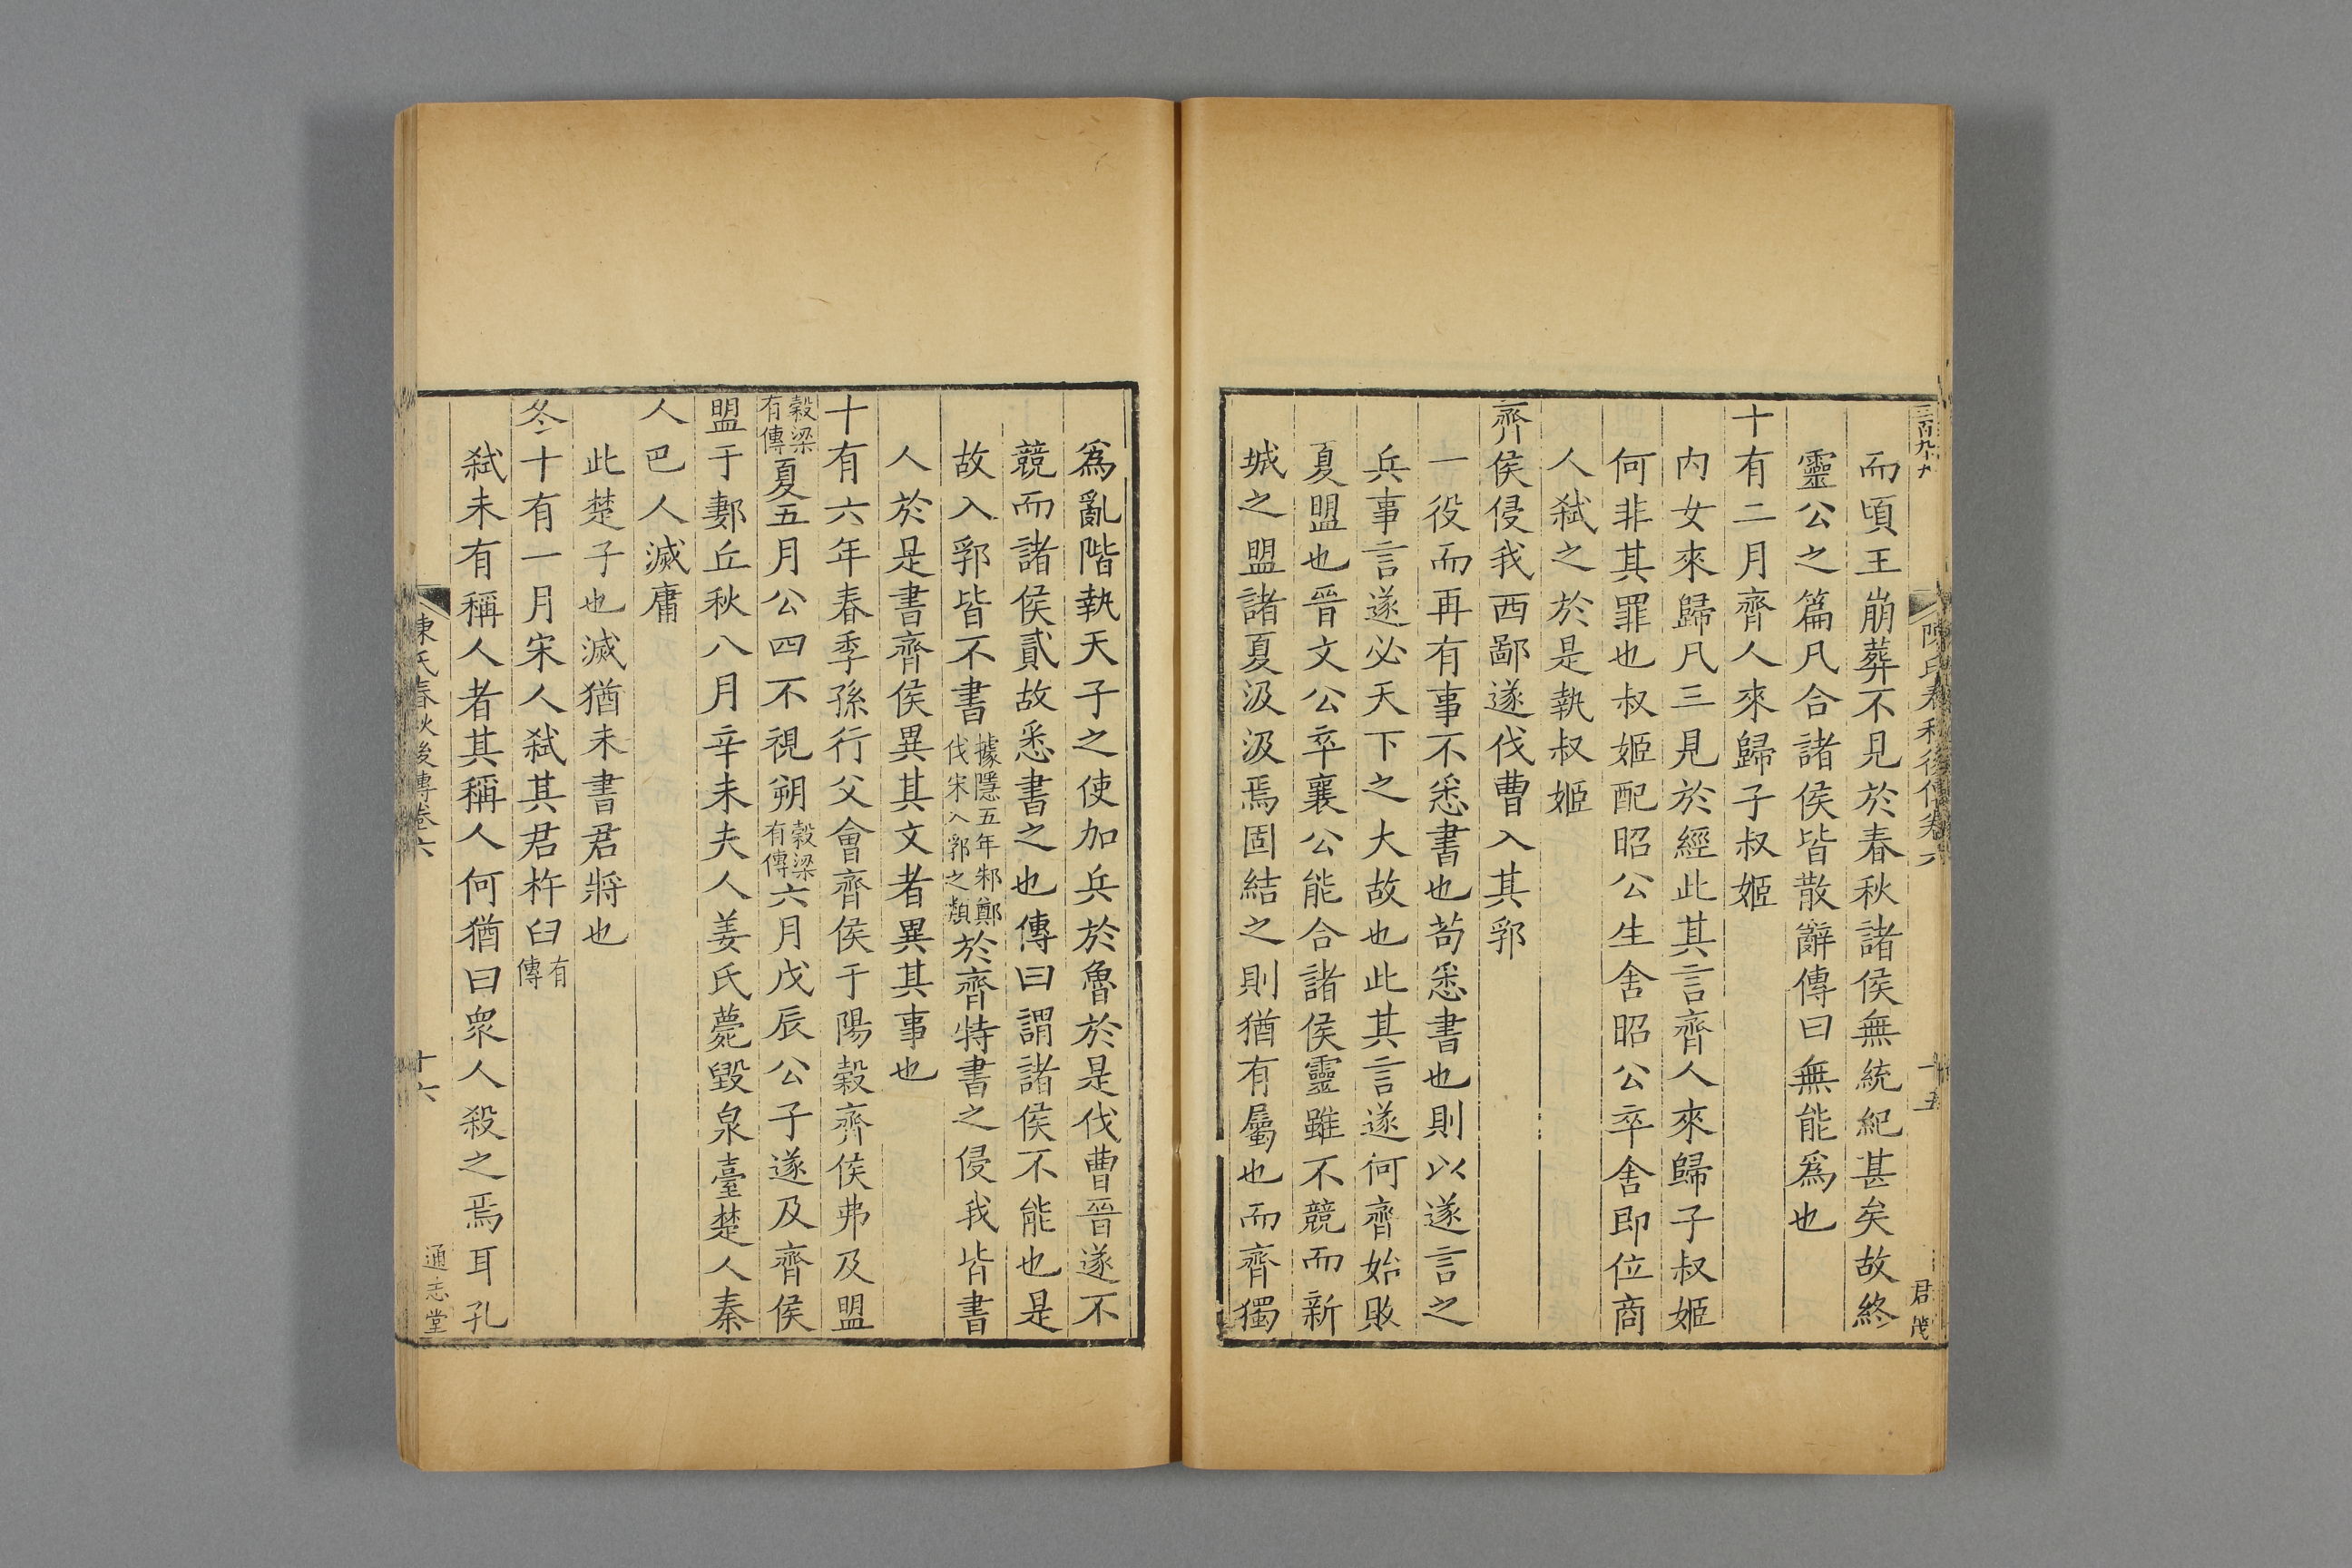 三百九十九
陳氏春秋後傳卷六
十五
君茂
而頃王崩葬不見於春秋諸侯無統紀甚矣故終
靈公之篇凡合諸侯皆散辭傳曰無能爲也
十有二月齊人來歸子叔姬
内女來歸凡三見於經此其言齊人來歸子叔姬
何非其罪也叔姬配昭公生舍昭公卒舍即位商
人弑之於是執叔姬
齊侯侵我西鄙遂伐曹入其郛
一役而再有事不悉書也苟悉書也則以遂言之
兵事言遂必天下之大故也此其言遂何齊始敗
夏盟也晉文公卒襄公能合諸侯靈雖不競而新
城之盟諸夏汲汲焉固結之則猶有屬也而齊獨
爲亂階執天子之使加兵於魯於是伐曹晉遂不
競而諸侯貳故悉書之也傳曰謂諸侯不能也是
故入郛皆不書據隱五年邾鄭伐宋入郛之類於齊特書之侵我皆書
人於是書齊侯異其文者異其事也
十有六年春季孫行父會齊侯于陽穀齊侯弗及盟
穀梁有傳夏五月公四不視朔穀梁有傳六月戊辰公子遂及齊侯
盟于郪丘秋八月辛未夫人姜氏薨毀泉臺楚人秦
人巴人滅庸
此楚子也滅猶未書君將也
冬十有一月宋人弑其君杵臼有傳
弑未有稱人者其稱人何猶曰衆人殺之焉耳孔
陳氏春秋後傳卷六
十六
通志堂